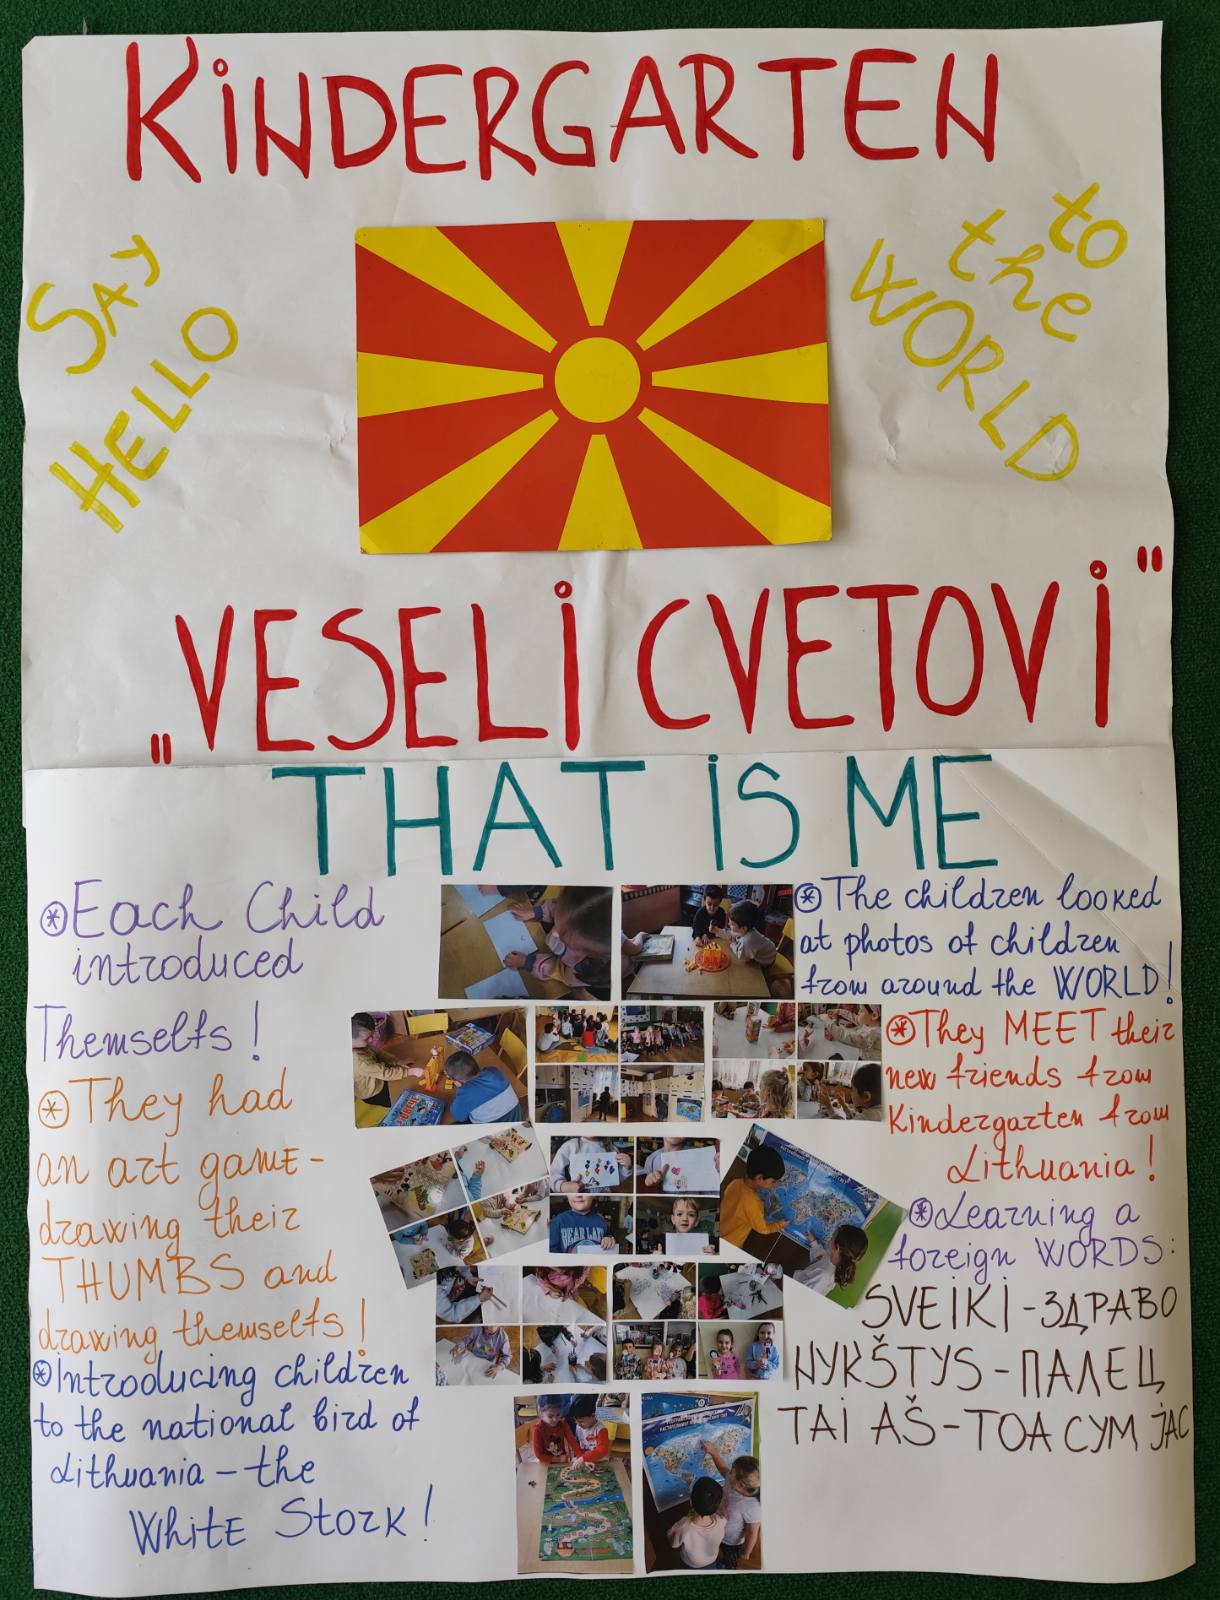 KiNDERGARTEN
SAY
HELLO
to
the
WORLD
„VESELi CVETOVi"
THAT iS ME
Each Child
introduced
Themselfs!
They had
an art game-
drawing their
THUMBS and
drawing themselfs!
Introducing children
to the national bird of
Lithuania - the
White Stork!
The children looked
at photos of children
from around the WORLD!
They MEET their
new friends from
Kindergarten from
Lithuania!
Learning a
foreign WORDS:
SVEiKi - ЗДРАВО
NYKŠTYS - ПАЛЕЦ
TAi AŠ - ТОА СУМ ЈАС